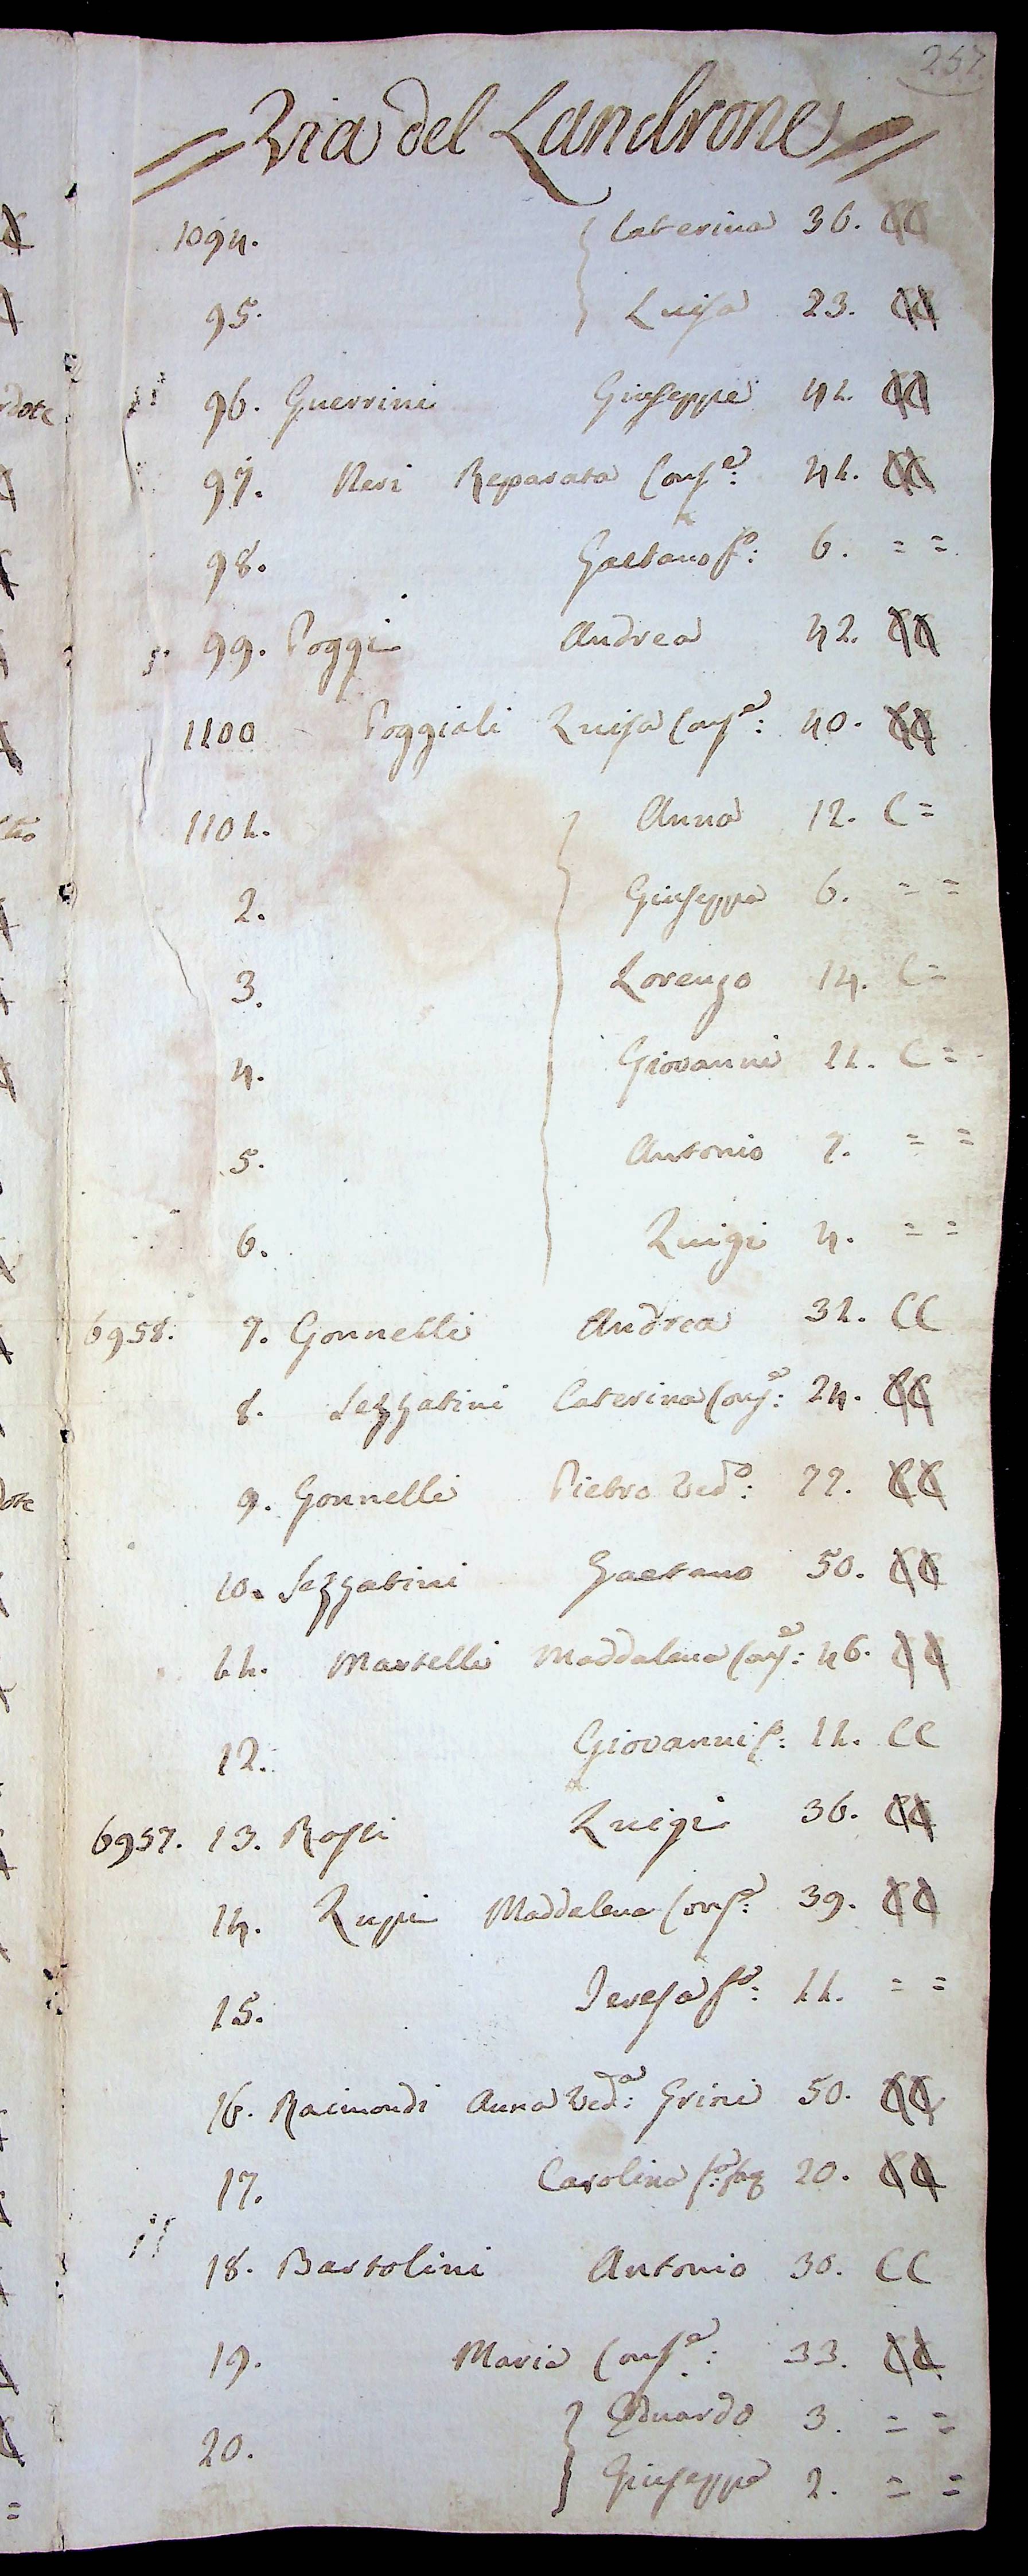 257
Via del Landrone
1094. Caterina 36. CC
95. Luisa 23. CC
96. Guerrini Giuseppe 41. CC
97. Neri Reparata Conse: 41. CC
98. Gaetano fo: 6. = =
99. Poggi Andrea 42. CC
1100 Poggiali Luisa Conse: 40. CC
1101. Anna 12. C =
2. Giuseppa 6. = =
3. Lorenzo 14. C =
4. Giovanni 11. C =
5. Antonio 7. = =
6. Luigi 4. = =
6958. 7. Gonnelli Andrea 31. CC
8. Sezzatini Caterina Conse: 24. CC
9. Gonnelli Pietro Vedo: 77. CC
10. Sezzatini Gaetano 50. CC
11. Martelli Maddalena Conse: 46. CC
12. Giovanni f: 11. CC
6957. 13. Rossi Luigi 36. CC
14. Lupi Maddalena Conse: 39. CC
15. Teresa fa: 11. = =
16. Raimondi Anna Veda: Grini 50. CC
17. Carolina fa: 20. CC
18. Bartolini Antonio 30. CC
19. Maria Conse: 33. CC
20. Eduardo 3. = =
Giuseppe 2. = =